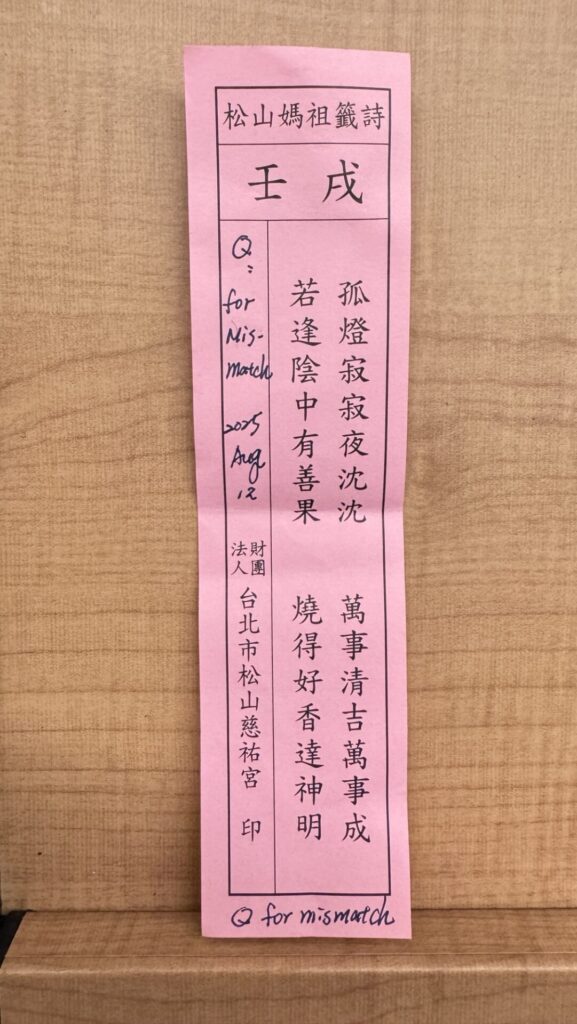 松山媽祖籤詩
壬戌
孤燈寂寂夜沈沈 萬事清吉萬事成
若逢陰中有善果 燒得好香達神明
Q:
for
Mis-
match
2025
Aug
12
財團
法人
台北市松山慈祐宮 印
Q for mismatch